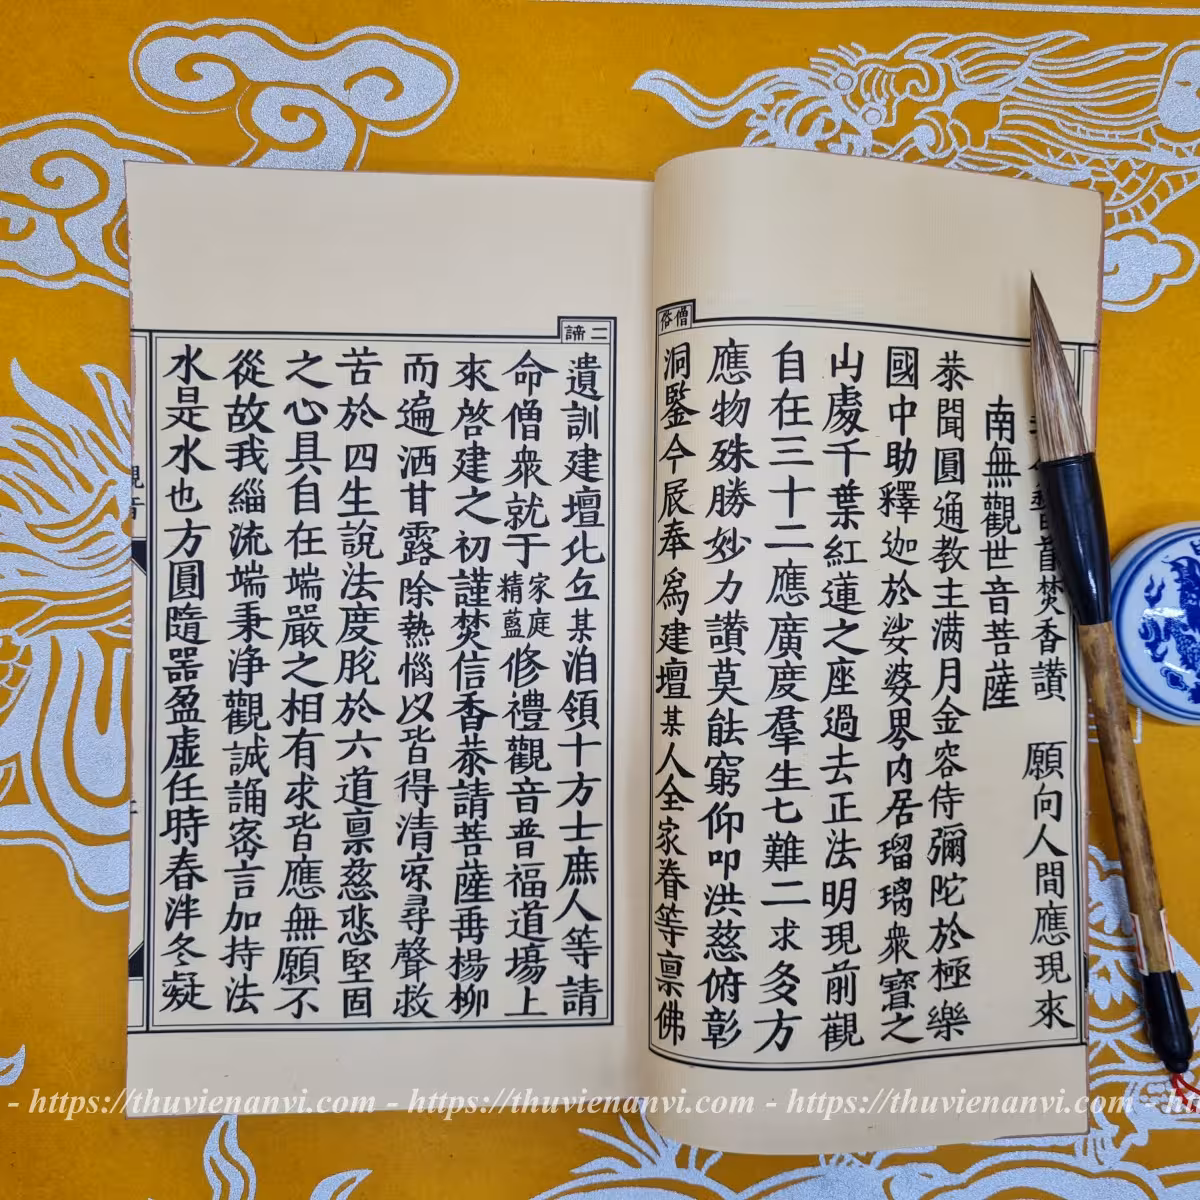 僧俗
首焚香讃 願向人間應現來
南無觀世音菩薩
恭聞圓通教主满月金容侍彌陀於極樂
國中助釋迦於娑婆界内居瑠璃衆寶之
山處千葉紅蓮之座過去正法明現前觀
自在三十二應廣度羣生七難二求多方
應物殊勝妙力讃莫能窮仰叩洪慈俯彰
洞鑒今辰奉 爲建壇某人全家眷等禀佛
二諦
遺訓建壇化丘某洎領十方士庶人等請
命僧衆就于家庭精藍修禮觀音普福道場上
來啓建之初謹焚信香恭請菩薩再楊柳
而遍洒甘露除熱惱以皆得清凉尋聲救
苦於四生說法度脫於六道禀慈悲堅固
之心具自在端嚴之相有求皆應無願不
從故我緇流端秉净觀誠誦密言加持法
水是水也方圓隨器盈虛任時春泮冬凝
觀音
- https://thuvienanvi.com - https://thuvienanvi.com - https://thuvienanvi.com - ht